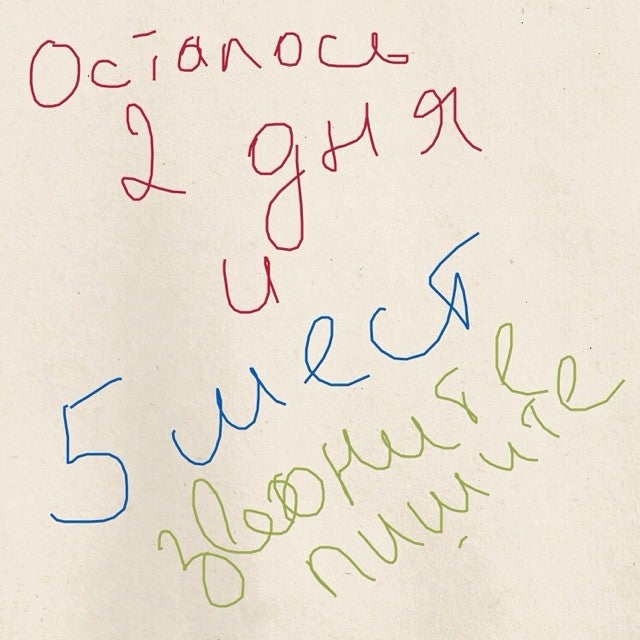 Осталось
2 дня
и
5 мест
звоните
пишите